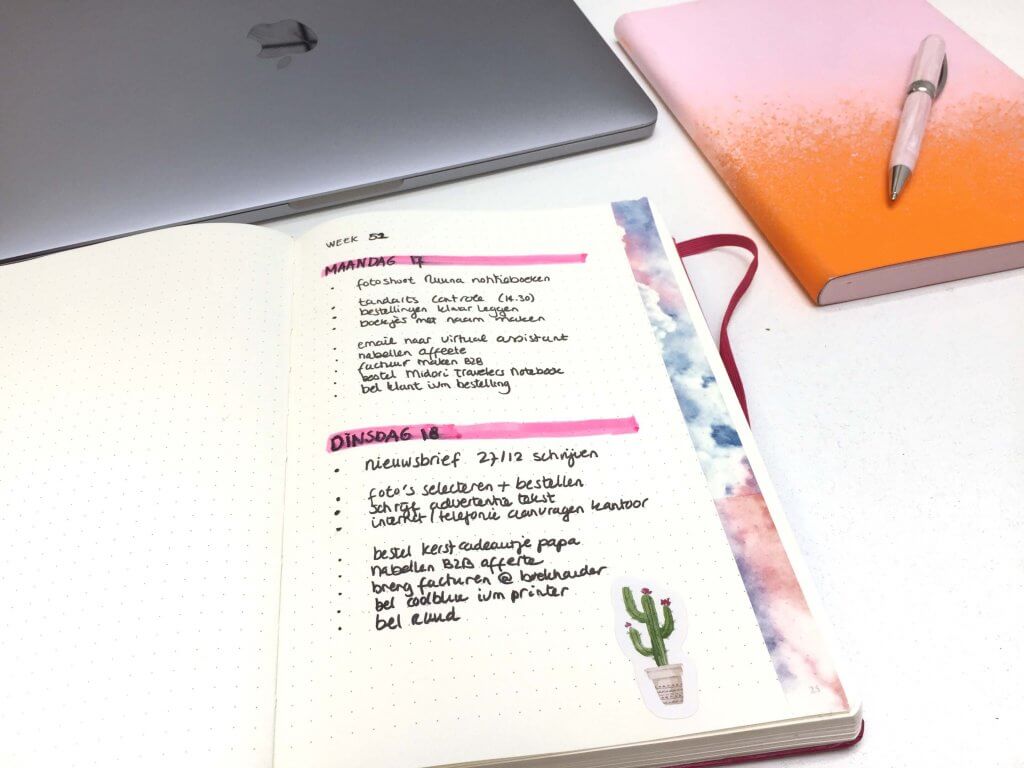 WEEK 52
MAANDAG 17
• fotoshoot Nuuna notitieboeken
• tandarts controle (14.30)
• bestellingen klaar leggen
• boekjes met naam maken
• email naar virtual assistant
• nabellen offerte
• factuur maken B2B
• bestel Midori Travelers Notebook
• bel klant ivm bestelling
DINSDAG 18
• nieuwsbrief 27/12 schrijven
• foto's selecteren + bestellen
• schrijf advertentie tekst
• internet/telefonie aanvragen kantoor
• bestel kerstcadeautje papa
• nabellen B2B offerte
• breng facturen @ boekhouder
• bel coolblue ivm printer
• bel Ruud
25